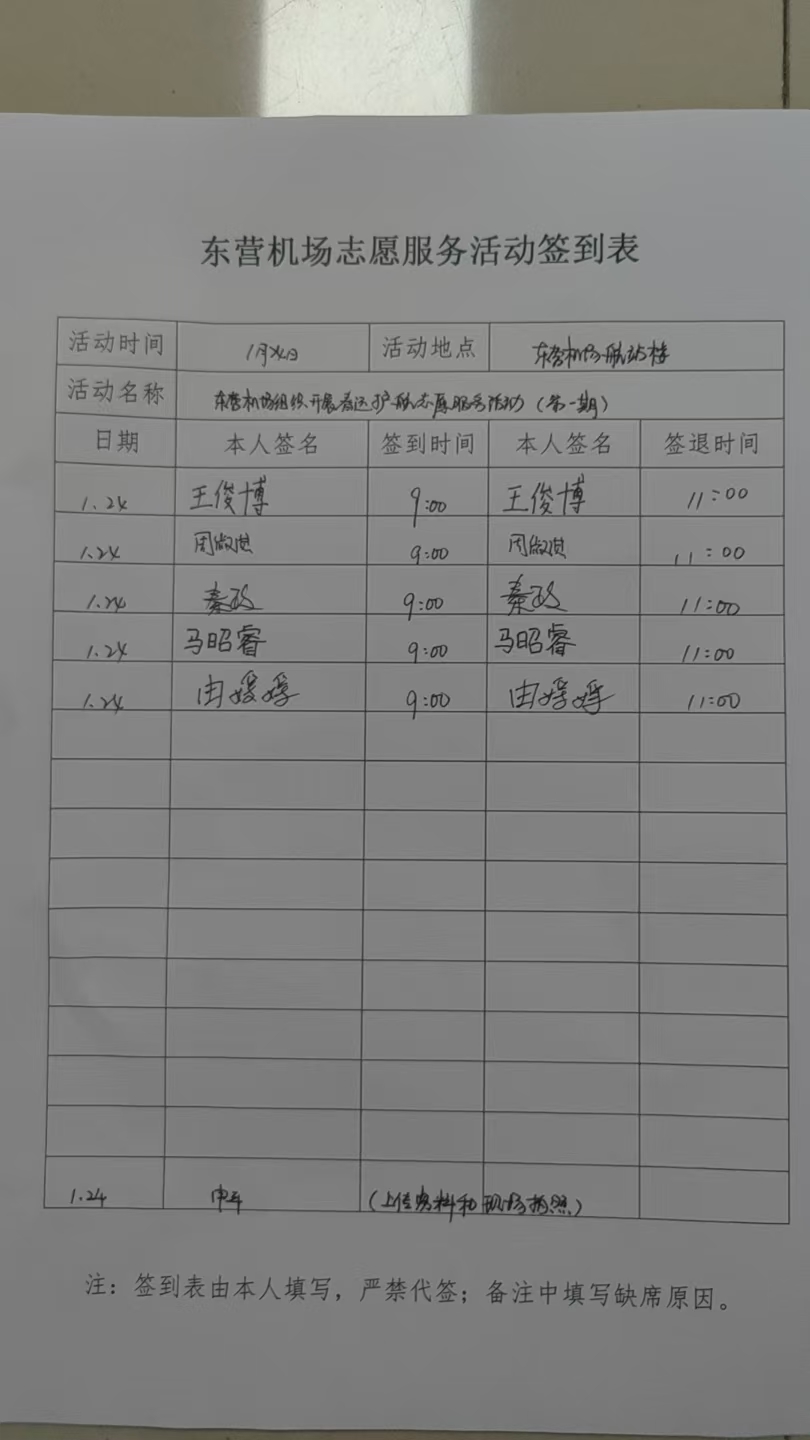 东营机场志愿服务活动签到表
活动时间 1月24日 活动地点 东营机场航站楼
活动名称 东营机场组织开展春运护航志愿服务活动（第一期）
日期 本人签名 签到时间 本人签名 签退时间
1.24 王俊博 9:00 王俊博 11:00
1.24 9:00 11:00
1.24 秦政 9:00 秦政 11:00
1.24 马昭睿 9:00 马昭睿 11:00
1.24 由媛媛 9:00 由媛媛 11:00
1.24 （上传资料和现场拍照）
注：签到表由本人填写，严禁代签；备注中填写缺席原因。